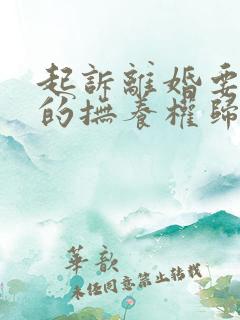 起訴離婚要
的撫養權歸
華歆
未经同意禁止转载